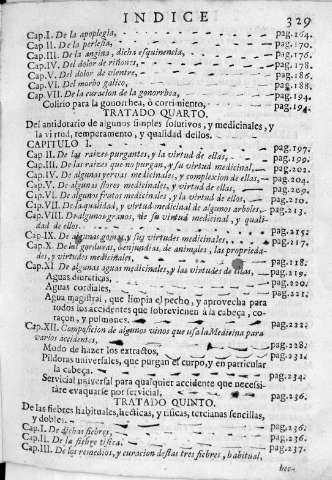 INDICE 329
Cap.I. De la apoplegia, pag.164.
Cap.II. De la perlesia, pag.170.
Cap.III. De la angina, dicha esquinencia, pag.176.
Cap.IV. Del dolor de riñones, pag.178.
Cap.V. Del dolor de vientre, pag.186.
Cap.VI. Del morbo galico, pag.188.
Cap.VII. De la curacion de la gonorrhea, pag.194.
Colirio para la gonorrhea, ò corrimiento, pag.194.
TRATADO QUARTO.
Del antidotario de algunos simples solutivos, y medicinales, y
la virtud, temperamento, y qualidad dellos.
CAPITULO I. pag.197.
Cap II. De las raizes purgantes, y la virtud de ellas, pag.199.
Cap.III. De las raizes que no purgan, y su virtud medicinal, pag.202.
Cap.IV. De algunas yervas medicinales, y complexion de ellas, pag.204.
Cap.V. De algunas flores medicinales, y virtud de ellas, pag.209.
Cap.VI. De algunos frutos medicinales, y su virtud, pag.210.
Cap.VII. De la qualidad, y virtud medicinal de algunos arboles, pag.213.
Cap.VIII. De algunos granos, de su virtud medicinal, y quali-
dad de ellos. pag.215.
Cap.IX. De algunas gomas, y sus virtudes medicinales, pag.217.
Cap.X. De las gorduras, y enjundias, de animales, las propieda-
des, y virtudes medicinales. pag.218.
Cap.XI De algunas aguas medicinales, y las virtudes de ellas, pag.219.
Aguas diureticas, pag.220.
Aguas cordiales, pag.221.
Agua magistral, que limpia el pecho, y aprovecha para
todos los accidentes que sobrevienen à la cabeça, co-
raçon, y pulmones. pag.222.
Cap.XII. Composicion de algunos vinos que usa la Medicina para
varios accidentes, pag.228.
Modo de hazer los extractos, pag.231.
Pildoras universales, que purgan el cuerpo, y en particular
la cabeça. pag.234.
Servicial universal para qualquier accidente que necessi-
tàre evaquarse por servicial, pag.236.
TRATADO QUINTO.
De las fiebres habituales, hecticas, y tisicas, tercianas sencillas,
y dobles.
Cap.I. De dichas fiebres, pag.236.
Cap.II. De la fiebre tisica, pag.236.
Cap.III. De los remedios, y curacion destas tres fiebres, habitual, pag.237.
hec-